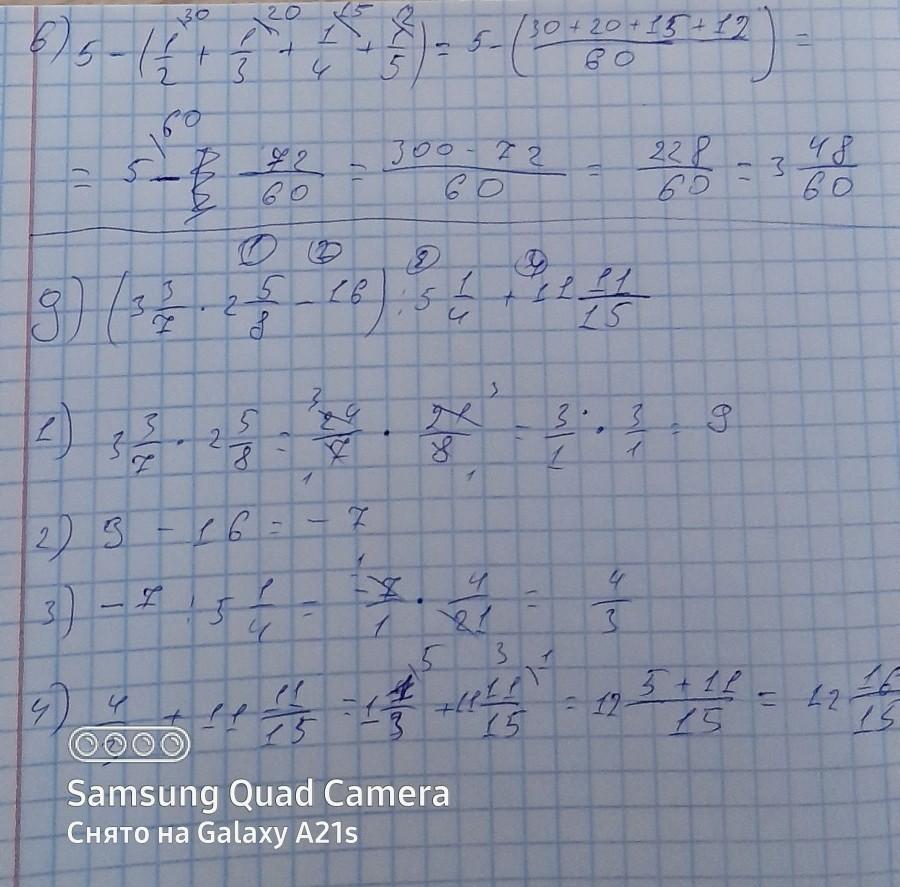 6) 5 - (1/2 + 1/3 + 1/4 + 1/5) = 5 - (30 + 20 + 15 + 12 / 60) =
= 5 - 72/60 = 300 - 72 / 60 = 228/60 = 3 48/60
g) (3 3/7 · 2 5/8 - 16) : 5 1/4 + 11 11/15
1) 3 3/7 · 2 5/8 = 24/7 · 21/8 = 3/1 · 3/1 = 9
2) 9 - 16 = - 7
3) - 7 : 5 1/4 = -7/1 · 4/21 = 4/3
4) 4/3 + 11 11/15 = 1 1/3 + 11 11/15 = 12 5 + 11 / 15 = 12 16/15
Samsung Quad Camera
Снято на Galaxy A21s